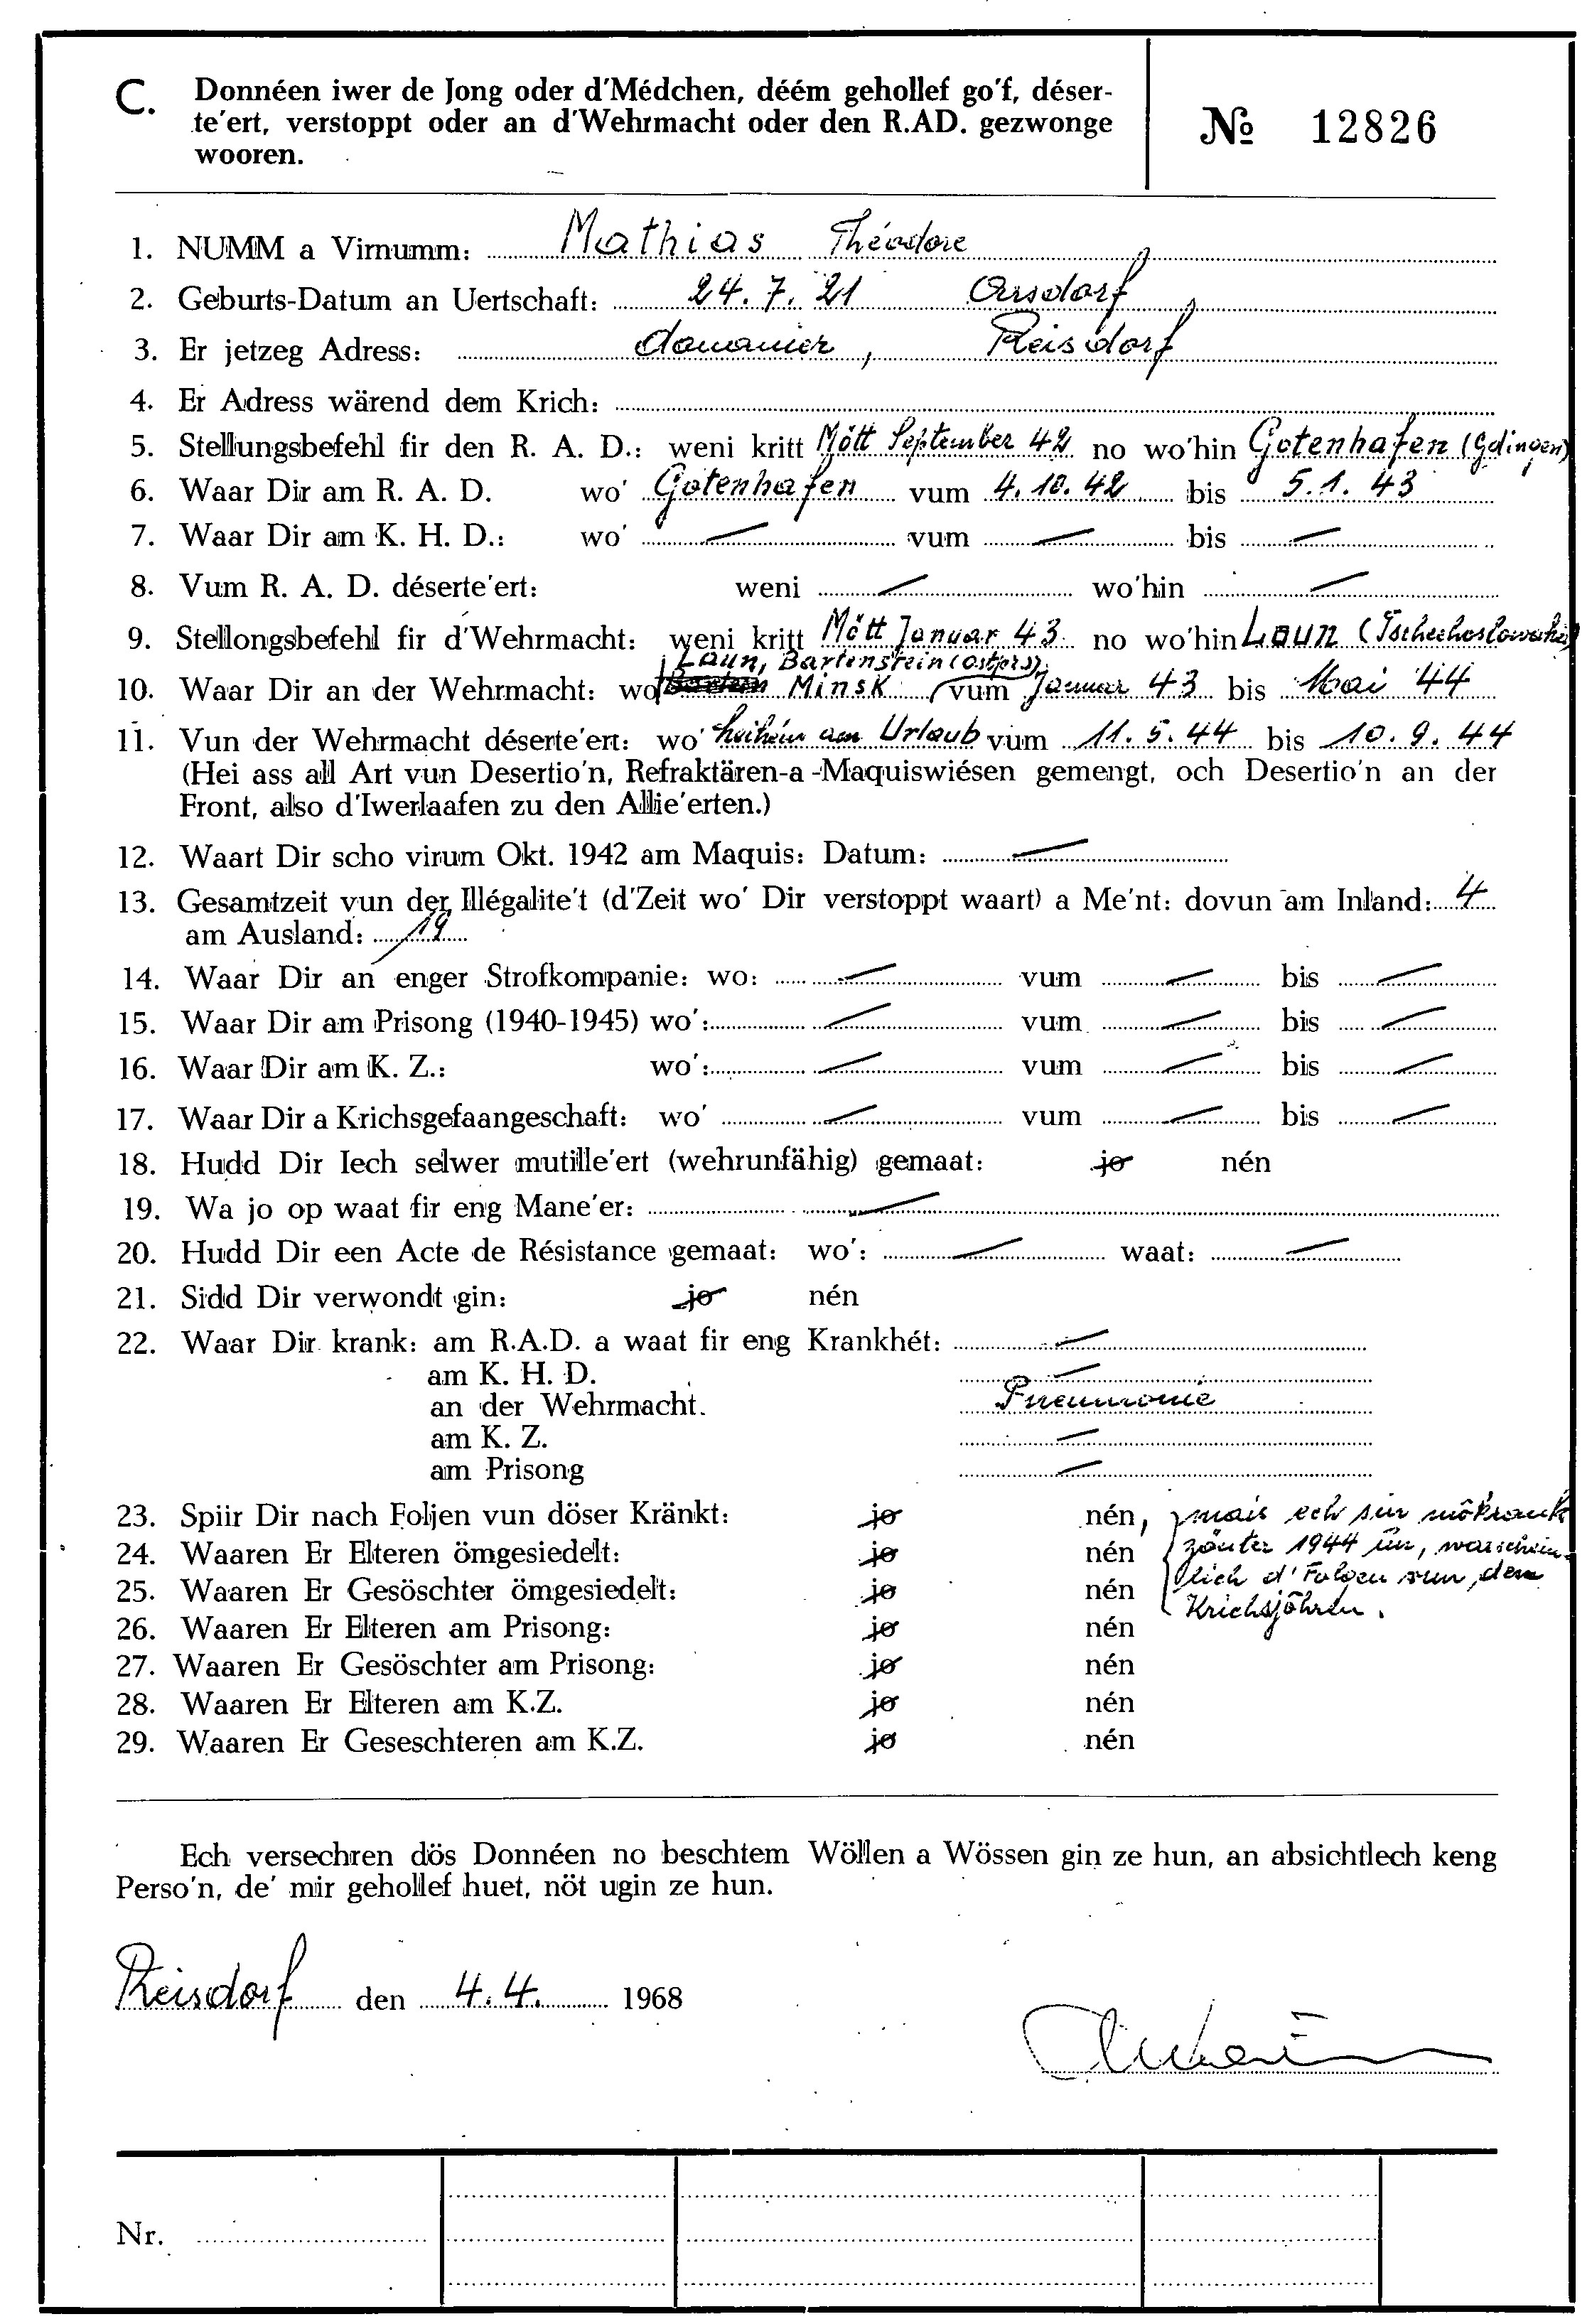 C. Donnéen iwer de Jong oder d'Médchen, déém gehollef go'f, déser-
te'ert, verstoppt oder an d'Wehrmacht oder den R.AD. gezwonge
wooren.
№ 12826
1. NUMM a Virnumm: Mathias Théodore
2. Geburts-Datum an Uertschaft: 24.7.21 Orsdorf
3. Er jetzeg Adress: douanier, Reisdorf
4. Er Adress wärend dem Krich:
5. Stellungsbefehl fir den R. A. D.: weni kritt Mött September 42 no wo'hin Gotenhafen (Gdingen)
6. Waar Dir am R. A. D. wo' Gotenhafen vum 4.10.42 bis 5.1.43
7. Waar Dir am K. H. D.: wo' — vum — bis —
8. Vum R. A. D. déserte'ert: weni — wo'hin —
9. Stellongsbefehl fir d'Wehrmacht: weni kritt Mött Januar 43 no wo'hin Laun (Tschechoslowakei)
Laun, Bartenstein (Ostprs),
10. Waar Dir an der Wehrmacht: wo Minsk vum Januar 43 bis Mai 44
11. Vun der Wehrmacht déserte'ert: wo' heihém am Urlaub vum 11.5.44 bis 10.9.44
(Hei ass all Art vun Desertio'n, Refraktären-a-Maquiswiésen gemengt, och Desertio'n an der
Front, also d'Iwerlaafen zu den Allie'erten.)
12. Waart Dir scho virum Okt. 1942 am Maquis: Datum: —
13. Gesamtzeit vun der Illégalite't (d'Zeit wo' Dir verstoppt waart) a Me'nt: dovun am Inland: 4
am Ausland: 19
14. Waar Dir an enger Strofkompanie: wo: — vum — bis —
15. Waar Dir am Prisong (1940-1945) wo': — vum — bis —
16. Waar Dir am K. Z.: wo': — vum — bis —
17. Waar Dir a Krichsgefaangeschaft: wo' — vum — bis —
18. Hudd Dir Iech selwer mutille'ert (wehrunfähig) gemaat: jo nén
19. Wa jo op waat fir eng Mane'er: —
20. Hudd Dir een Acte de Résistance gemaat: wo': — waat: —
21. Sidd Dir verwondt gin: jo nén
22. Waar Dir krank: am R.A.D. a waat fir eng Krankhét: —
am K. H. D. —
an der Wehrmacht. Pneumonie
am K. Z. —
am Prisong —
23. Spiir Dir nach Foljen vun döser Kränkt: jo nén, mais ech sin mökrank
24. Waaren Er Elteren ömgesiedelt: jo nén zönter 1944 un, warschein-
25. Waaren Er Gesöschter ömgesiedelt: jo nén lich d'Folgen vun den
26. Waaren Er Elteren am Prisong: jo nén Krichsjöhren.
27. Waaren Er Gesöschter am Prisong: jo nén
28. Waaren Er Elteren am K.Z. jo nén
29. Waaren Er Geseschteren am K.Z. jo nén
Ech versechren dös Donnéen no beschtem Wöllen a Wössen gin ze hun, an absichtlech keng
Perso'n, de' mir gehollef huet, nöt ugin ze hun.
Reisdorf den 4.4. 1968
Nr.